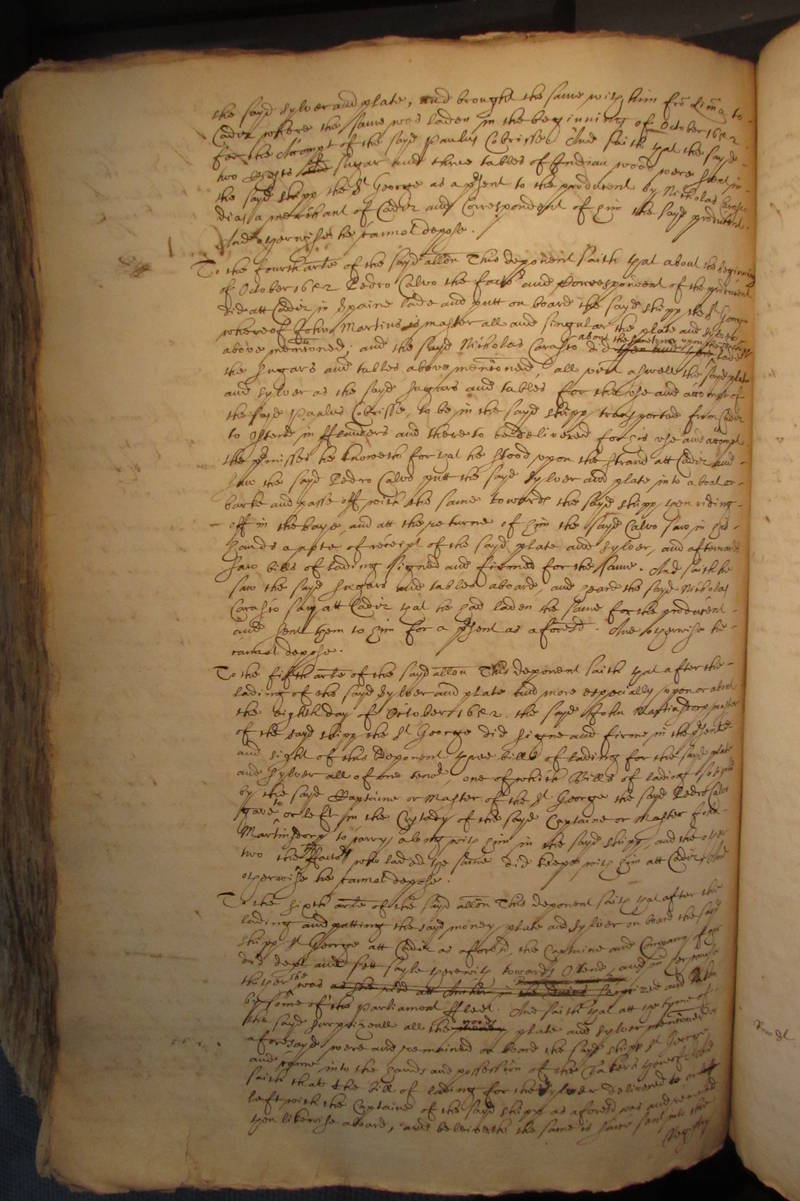 the sayd sylver and plate, and brought the same with him from Lima to
Cadiz where the same was laden in the beginning of October 1652
for the Accompt of the sayd Paulus Cobrisse. And saith that the sayd
two chests sugar and three tables of Indian wood were sent in
the sayd shipp the St George as a present to the producent by Nicholas
dias a merchant of Cadiz and Correspondent of him the sayd producent.
And otherwise he cannot depose.
To the fourth arte of the sayd allon This deponent saith that about the beginning
of October 1652 Pedro Calvo the factor and Correspondent of the producent
did att Cadiz in Spaine lade and putt on board the sayd shipp the St George
whereof John Martins is master all and singular the plate and sylver
above mentioned, and the sayd Nicholas Carasco did about the same tyme
the sugars and tables above mentioned all which aswell the sayd plate
and sylver as the sayd sugars and tables for the use and accompt of
the sayd Paulus Cobrisse, to be in the sayd shipp transported from Cadiz
to Ostend in fflanders and there to be delivered for his use and accompt
the premisses he knoweth for that he stood upon the strand att Cadiz and
saw the sayd Pedro Calvo putt the sayd sylver and plate into a boat or
barke and passe off with the same towards the sayd shipp then riding
off in the baye, and att the returne of him the sayd Calvo saw in his
hands a note of receipt of the sayd plate and sylver, and afterwards
saw bills of lading signed and firmed for the same. And saith he
saw the sayd sugars and tables aboard, and heard the sayd Nicholas
Carasco say att Cadiz that he had laden the same for the producent
and sent them to him for a present as aforesd. And otherwise he
cannot depose.
To the fifth arte of the sayd allon This deponent saith that after the
lading of the sayd sylver and plate and more especially upon or about
the eighth day of October 1652. the sayd John Martinsdorp master
of the sayd shipp the St George did signe and firme in the presence
and sight of this deponent three bills of lading for the sayd plate
and sylver all of one tenor one of which Bills of lading so signed
by the sayd Captaine or Master of the St George the sayd Pedro Calvo
gave to or left in the Custody of the sayd Captaine or Master John
Martinsdorp to carry along with him in the sayd shipp, and the other
two the ffactor who laded the same did keepe with him att Cadiz, And
otherwise he cannot depose.
To the sixth arte of the sayd allon This deponent saith that after the
lading and putting the sayd money, plate and sylver on board the sayd
shipp St George att Cadiz as aforesd, the Captaine and Company
did dept and sett sayle therewith towards Ostend, and in her course
thither she was surprized and taken
by some of the Parliament ffleet. And saith that at the tyme of
the sayd surprizall all the plate and sylver mentioned
aforesayd were and remained on board the sayd shipp St George
and came into the hands and possession of the Takers thereof And
saith that the Bill of lading for the sylver delivered to or
left with the Captaine of the sayd shipp as aforesd was and remained
then likewise aboard, and beleeveth the same is since sent into the
Registry